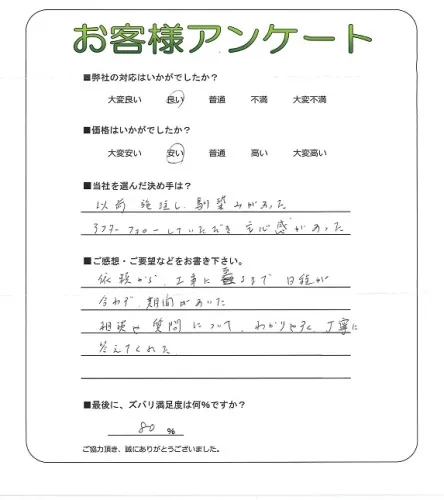 お客様アンケート
■弊社の対応はいかがでしたか?
大変良い 良い 普通 不満 大変不満
■価格はいかがでしたか?
大変安い 安い 普通 高い 大変高い
■当社を選んだ決め手は?
以前 施工し、馴染みがあった
アフターフォローしていただき 安心感があった
■ご感想・ご要望などをお書き下さい。
依頼から、工事に至るまで 日程が
合わず、期間があいた
相談や質問について、わかりやすく、丁寧に
答えてくれた
■最後に、ズバリ満足度は何%ですか?
80 %
ご協力頂き、誠にありがとうございました。